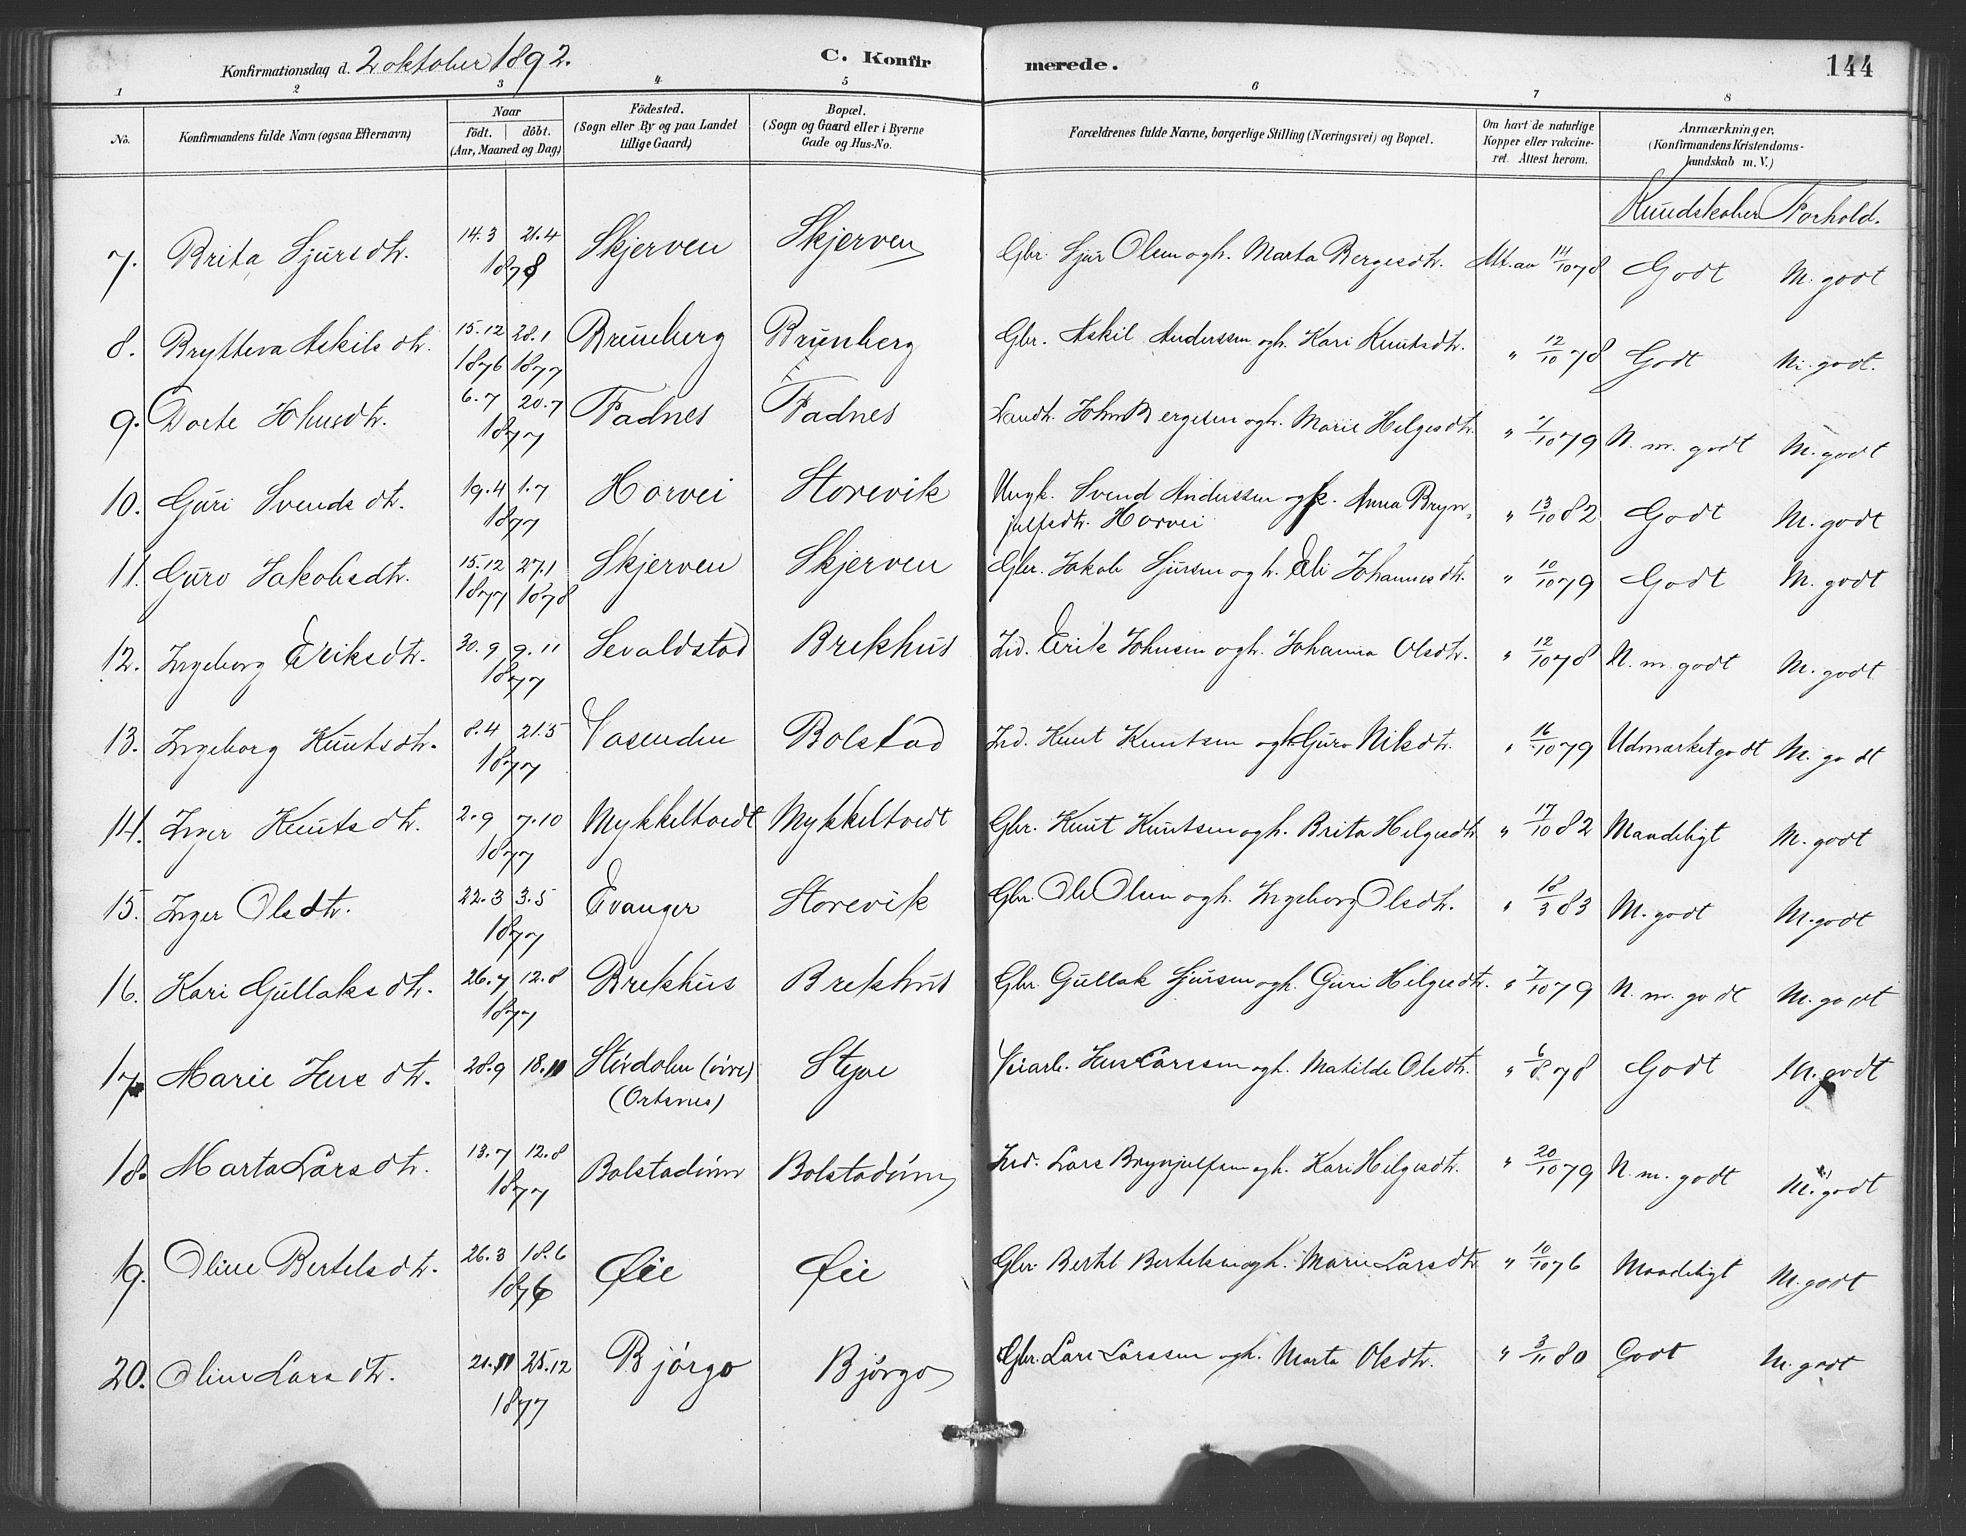 Konfirmationsdag d. 2 oktober 1892. C. Konfirmerede. 144
1 2 3 4 5 6 7 8
No. Konfirmandens fulde Navn (ogsaa Efternavn) Naar födt. döbt. (Aar, Maaned og Dag) Födested. (Sogn eller By og paa Landet tillige Gaard) Bopæl. (Sogn og Gaard eller i Byerne Gade og Hus-No. Forældrenes fulde Navne, borgerlige Stilling (Næringsvei) og Bopæl. Om havt de naturlige Kopper eller vakcineret. Attest herom. Anmærkninger. (Konfirmandens Kristendomskundskab m. V.)
Kundskaber Forhold.
7. Brita Sjursdtr. 14.3 21.4 1878 Skjerven Skjerven Gbr. Sjur Olsen og h. Marta Bergesdtr. Att. av 14/10 78 Godt M. godt
8. Brytteva Askilsdtr. 15.12 1876 28.1 1877 Bruneberg Brunberg Gbr. Askil Anderssen og h. Kari Knutsdtr. " 12/10 78 Godt M. godt.
9. Dorte Johnsdtr. 6.7 20.7 1877 Fadnes Fadnes Landh. John Bergesen og h. Marie Helgesdtr. " 7/10 79 N. m. godt M. godt
10. Guri Svendsdtr. 19.4 1.7 1877 Horvei Storevik Ungk. Svend Anderssen og p. Anna Brynjulfsdtr. Horvei " 13/10 82 Godt M. godt
11. Guro Jakobsdtr. 15.12 1877 27.1 1878 Skjerven Skjerven Gbr. Jakob Sjursen og h. Eli Johannesdtr. " 10/10 79 Godt M. godt
12. Ingeborg Eriksdtr. 30.9 9.11 1877 Sevaldstad Brekhus Ind. Erik Johnsen og h. Johanna Olsdtr. " 12/10 78 N. m. godt M. godt
13. Ingeborg Knutsdtr. 8.4 21.5 1877 Vasenden Bolstad Ind. Knut Knutsen og h. Guro Nilsdtr. " 16/10 79 Udmærket godt M. godt
14. Inger Knutsdtr. 2.9 7.10 1877 Mykkeltvedt Mykkeltvedt Gbr. Knut Knutsen og h. Brita Helgesdtr. " 17/10 82 Maadeligt M. godt
15. Inger Olsdtr. 22.3 3.5 1877 Evanger Storevik Gbr. Ole Olsen og h. Ingeborg Olsdtr. " 18/3 83 M. godt M. godt
16. Kari Gullaksdtr. 26.7 12.8 1877 Brekhus Brekhus Gbr. Gullak Sjursen og h. Guri Helgesdtr. " 7/10 79 N. m. godt M. godt
17. Marie Jensdtr. 28.9 18.11 Stördalen (övre) (Ortsnes) Steine Veiarb. Jens Larssen og h. Matilde Olsdtr. " 6/8 78 Godt M. godt
18. Marta Larsdtr. 13.7 12.8 1877 Bolstadöuri Bolstadöuri Ind. Lars Brynjulfsen og h. Kari Helgesdtr. " 20/10 79 N. m. godt M. godt
19. Oline Bertelsdtr. 26.3 18.6 1876 Øie Øie Gbr. Bertel Bertelsen og h. Marie Larsdtr. " 10/10 76 Maadeligt M. godt
20. Oline Larsdtr. 21.11 25.12 1877 Björgo Björgo Gbr. Lars Larssen og h. Marta Olsdtr. " 3/11 80 Godt M. godt